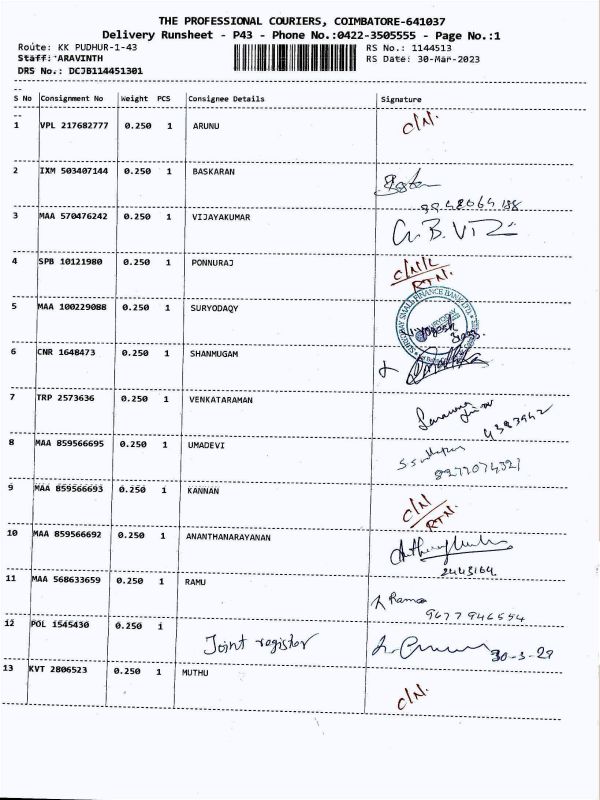 THE PROFESSIONAL COURIERS, COIMBATORE-641037
Delivery Runsheet - P43 - Phone No.:0422-3505555 - Page No.:1
Route: KK PUDHUR-1-43 RS No.: 1144513
Staff: ARAVINTH RS Date: 30-Mar-2023
DRS No.: DCJB114451301
S No Consignment No Weight PCS Consignee Details Signature
1 VPL 217682777 0.250 1 ARUNU C/N.
2 IXM 503407144 0.250 1 BASKARAN
3 MAA 570476242 0.250 1 VIJAYAKUMAR
4 SPB 10121980 0.250 1 PONNURAJ C/N/L
RTN.
5 MAA 100229088 0.250 1 SURYODAQY
SURYODAY SMALL FINANCE BANK LTD.
6 CNR 1648473 0.250 1 SHANMUGAM
7 TRP 2573636 0.250 1 VENKATARAMAN
8 MAA 859566695 0.250 1 UMADEVI
9 MAA 859566693 0.250 1 KANNAN C/N
RTN.
10 MAA 859566692 0.250 1 ANANTHANARAYANAN
2443164
11 MAA 568633659 0.250 1 RAMU Ramo
9677946554
12 POL 1545430 0.250 1
Joint register
13 KVT 2806523 0.250 1 MUTHU C/N.